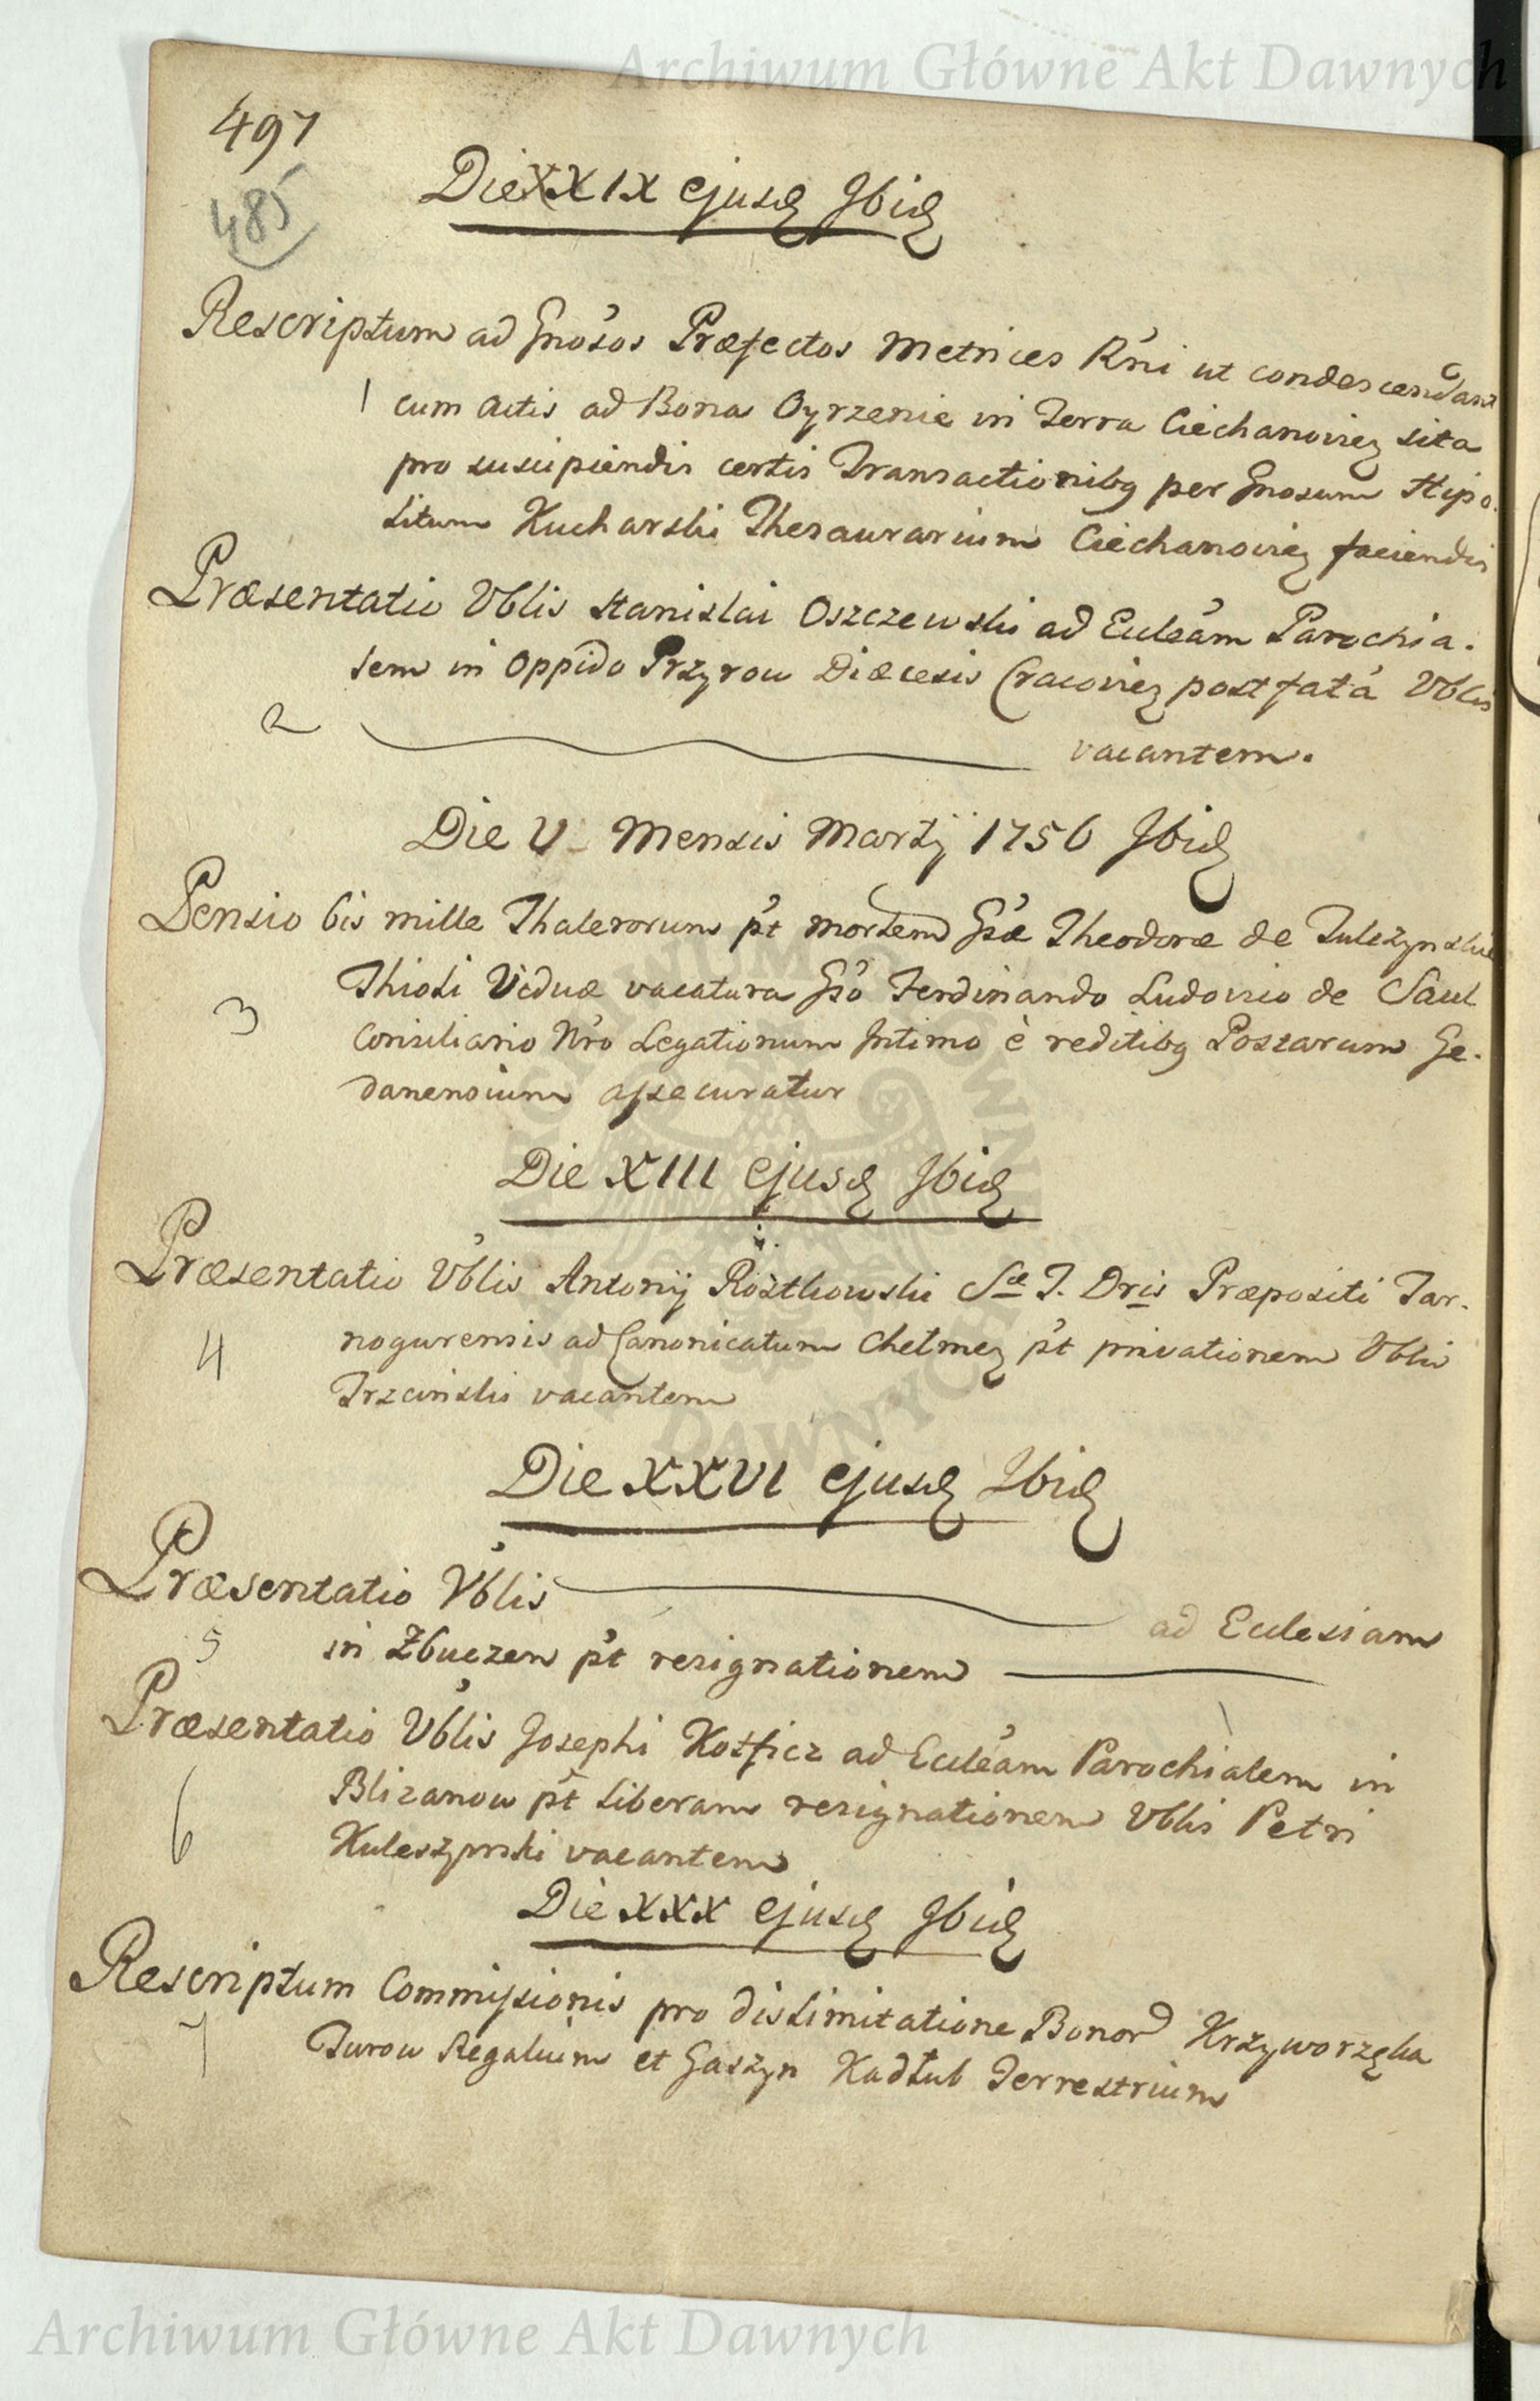 Archiwum Główne Akt Dawnych
497
485
Die XXIX ejusd Ibid
Rescriptum ad Gnosos Præfectos Metrices R'ni ut condescendant
1 cum Actis ad Bona Oyrzenie in Terra Ciechanovien sita
pro suscipiendis certis Transactionibq per Gnosum Hipo-
litum Kucharski Thesaurarium Ciechanovien faciendis
Præsentatio Vblis Stanislai Oszczewski ad Eccleam Parochia-
lem in Oppido Przyrow Diæcesis Cracovien post fata Vblis
2 vacantem.
Die V Mensis Martij 1756 Ibid
Pensio bis mille Thalerorum p't mortem Gsæ Theodoræ de
Thioli Viduæ vacatura Gso Ferdinando Ludovico de Saul
3 Consiliario Nro Legationum Intimo è reditibq Postarum Ge-
danensium assecuratur
Die XIII ejusd Ibid
Præsentatio Vblis Antonij Rostkowski Sæ T. Dris Præpositi Tar-
4 nogurensis ad Canonicatum Chelmen p't privationem Vblis
Trzcinski vacantem
Die XXVI ejusd Ibid
Præsentatio Vblis ad Ecclesiam
5 in Zbuczen p't resignationem
Præsentatio Vblis Josephi ad Eccleam Parochialem in
6 Blizanow p't liberam resignationem Vblis Petri
Kuleszynski vacantem
Die XXX ejusd Ibid
Rescriptum Commissionis pro dislimitatione Bonor Krzyworzęka
7 Turow Regalium et Gaszyn Kadłub Terrestrium
Archiwum Główne Akt Dawnych